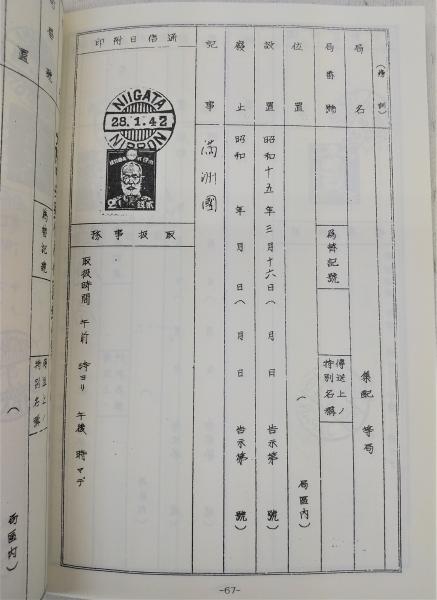 局名
(傳訓)
集配 等局
局番號
爲替記號
傳送上ノ特別名稱
位置
(局區內)
設置
昭和十五年三月十六日(月日 告示第 號)
廢止
昭和 年 月 日(月日 告示第 號)
記事
滿洲國
通信日附印
NIIGATA
28.1.42
NIPPON
取扱事務
取扱時間 午前 時ヨリ 午後 時マデ
爲替記號
傳送上ノ特別名稱
局區內)
-67-